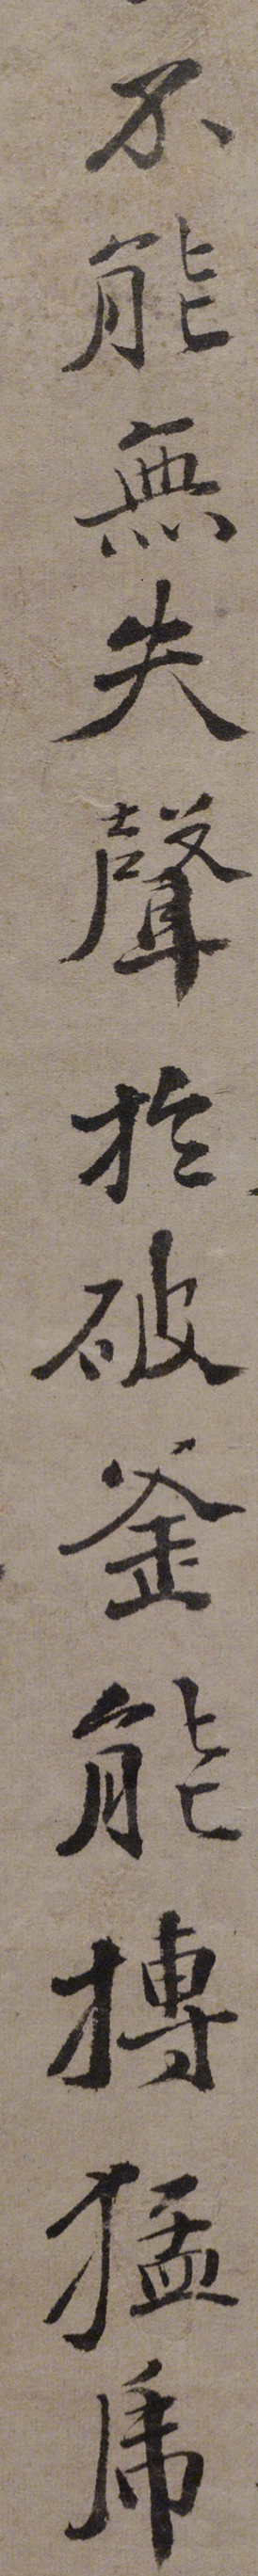 不能無失聲扵破釜能搏猛虎